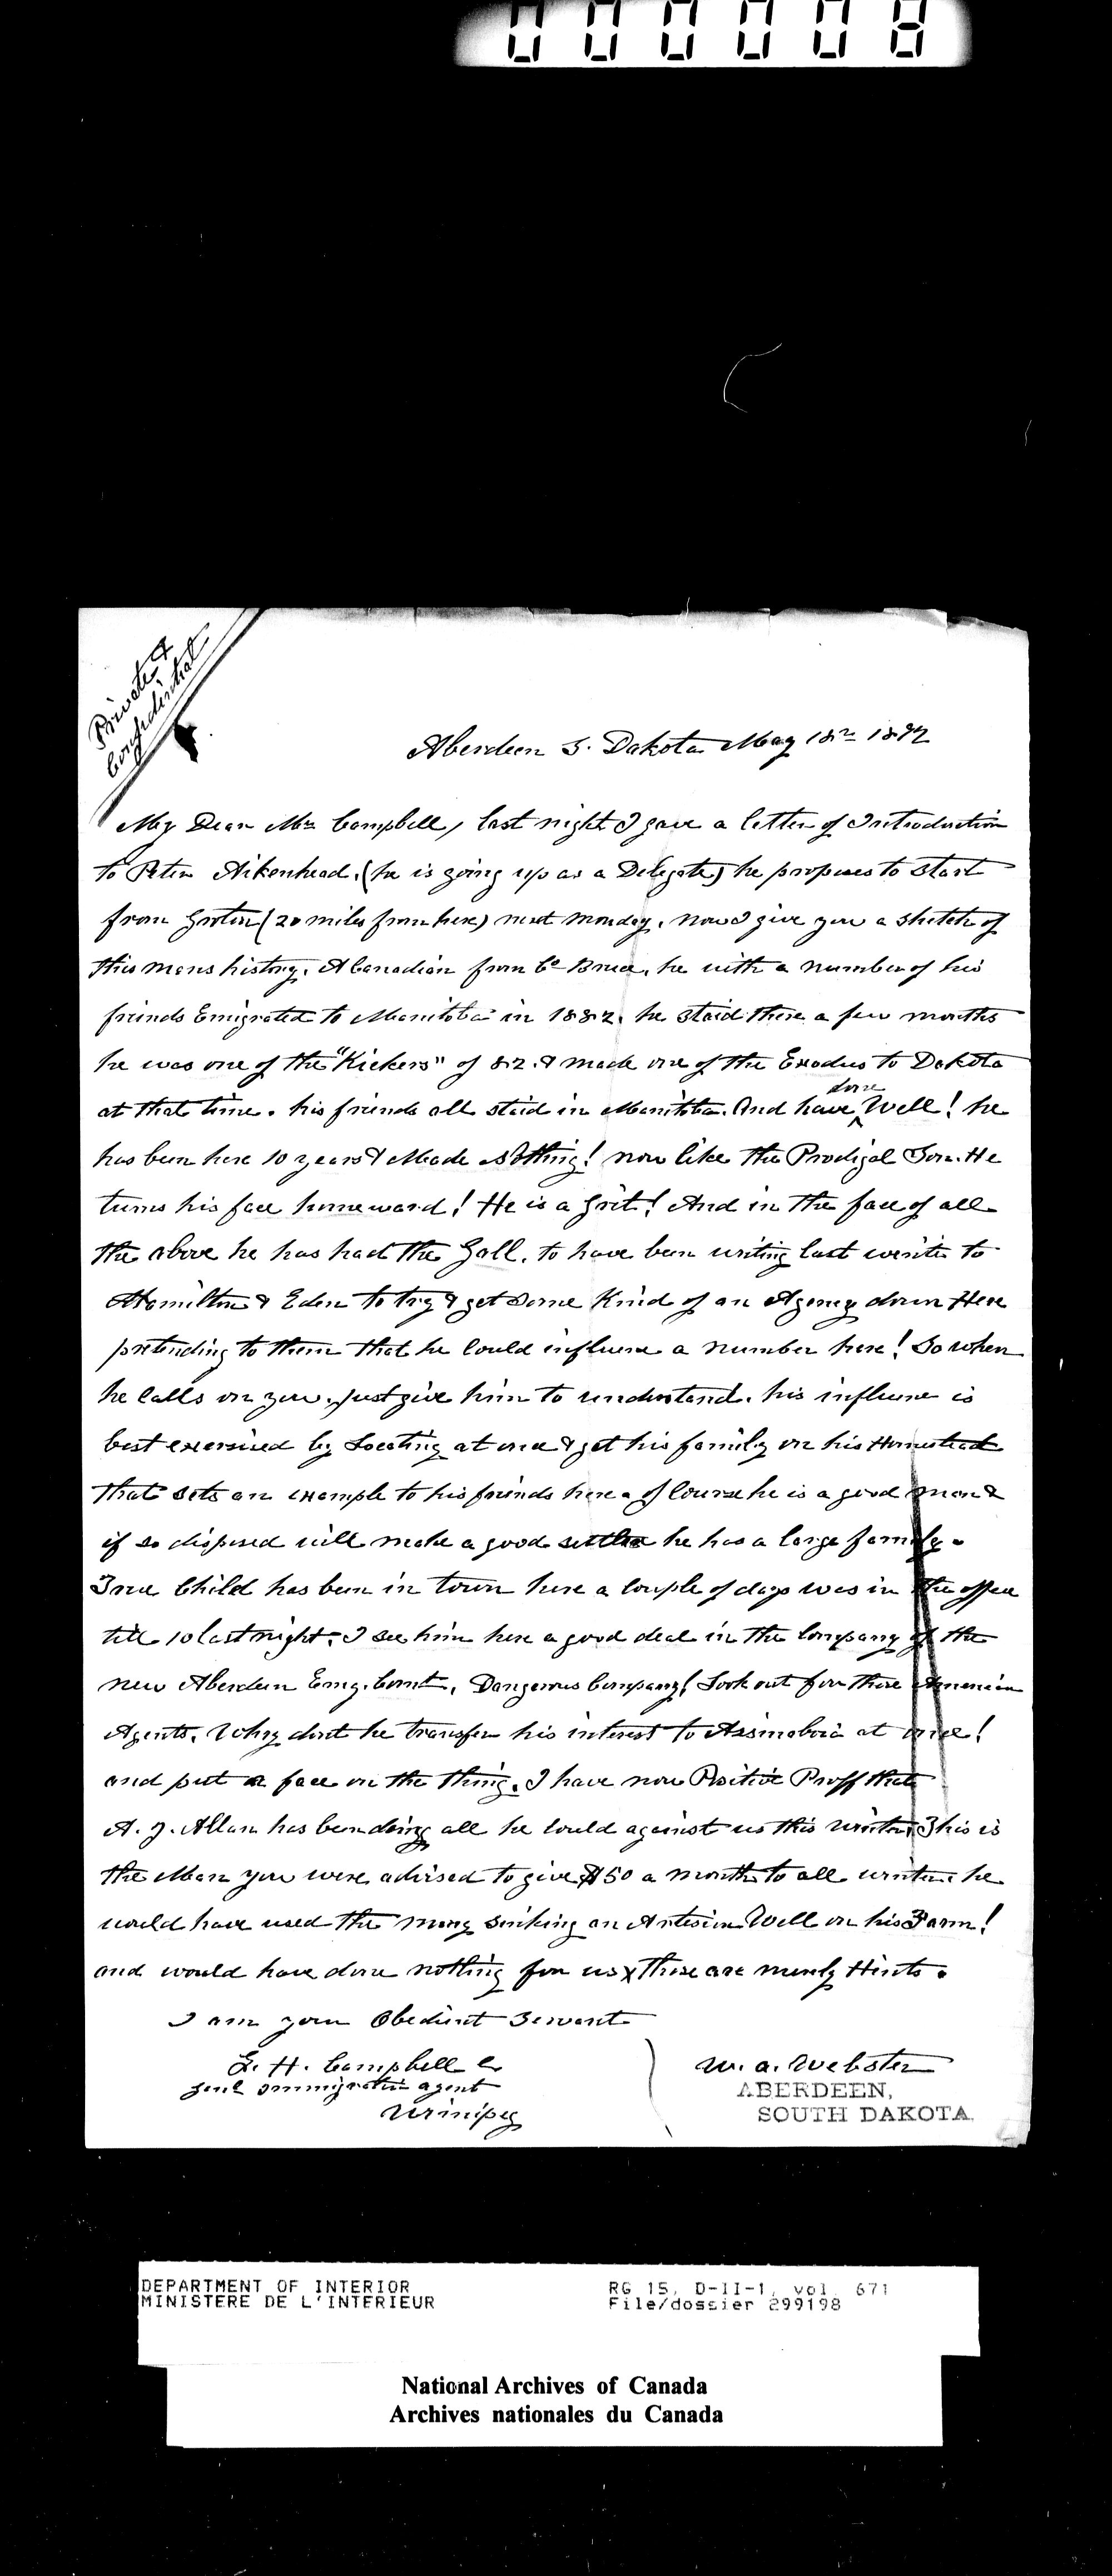 000008
Private &
Confidential
Aberdeen S. Dakota May 18th 1892
My Dear Mr Campbell, last night I gave a letter of Introduction
to Peter Aikenhead. (he is going up as a Delegate) he proposes to start
from Groton (20 miles from here) next Monday. now I give you a sketch of
this mans history. A Canadian from Co Bruce, he with a number of his
friends Emigrated to Manitoba in 1882. he staid there a few months
he was one of the "Kickers" of 82. & made one of the Exodus to Dakota
at that time. his friends all staid in Manitoba. And have done Well! he
has been here 10 years & Made Nothing! now like the Prodigal Son. He
turns his face homeward! He is a Grit! And in the face of all
the above he has had the Gall. to have been writing last winter to
Hamilton & Eden to try & get some Kind of an Agency down Here
pretending to them that he could influence a number here! So when
he calls on you. Just give him to understand. his influence is
best exercised by Locating at once & get his family on his Homestead
that sets an example to his friends here. of Course he is a good man &
if so disposed will make a good settler he has a large family.
True Child has been in town here a couple of days was in the office
till 10 last night. I see him here a good deal in the Company of the
new Aberdeen Emg. Comt. Dangerous Company! Look out for these American
Agents. Why dont he transfer his interest to Assinaboia at once!
and put a face on the thing. I have now Positive Proff that
A. J. Allan has been doing all he could against us this winter. This is
the Man you were advised to give $50 a month to all winter he
would have used the mony sinking an Artesian Well on his Farm!
and would have done nothing for us x These are merely Hints.
I am your Obedient Servant
L. H. Campbell
Genl Immigration agent
Winipeg
W. A. Webster
ABERDEEN,
SOUTH DAKOTA.
DEPARTMENT OF INTERIOR
MINISTERE DE L'INTERIEUR
RG 15, D-II-1, vol. 671
File/dossier 299198
National Archives of Canada
Archives nationales du Canada